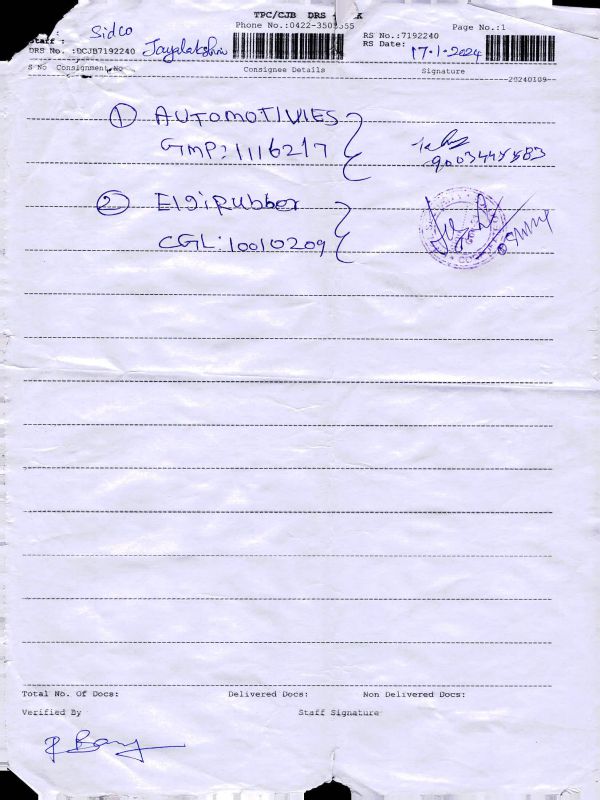 TPC/CJB DRS
Phone No.:0422-3503555
Page No.:1
: Sidco
Staff : Jayalakshmi
RS No.:7192240
RS Date: 17-1-2024
DRS No. :DCJB7192240
S No Consignment No Consignee Details Signature
20240109
① AUTOMOTIVIES
GMP:1116217
② ElgiRubber
CGL:10010209
Total No. Of Docs: Delivered Docs: Non Delivered Docs:
Verified By Staff Signature